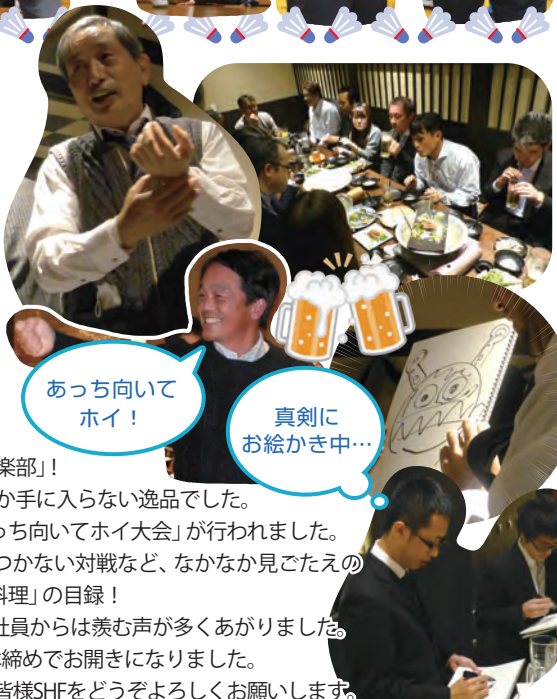 あっち向いて
ホイ！
真剣に
お絵かき中…
楽部」！
か手に入らない逸品でした。
っち向いてホイ大会」が行われました。
つかない対戦など、なかなか見ごたえの
料理」の目録！
社員からは羨む声が多くあがりました。
締めでお開きになりました。
皆様SHFをどうぞよろしくお願いします。